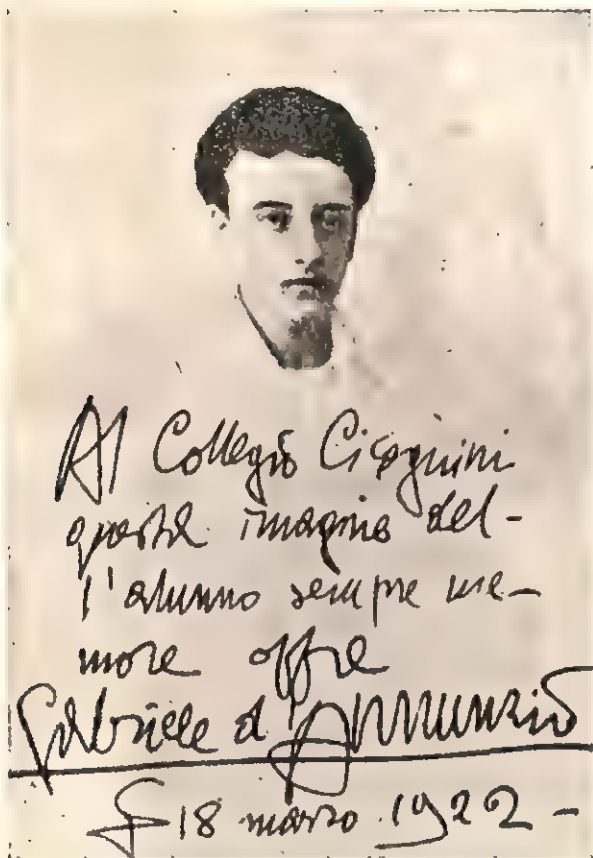 Al Collegio Cicognini
questa imagine del-
l'alunno sempre me-
more offre
Gabriele d'Annunzio
18 marzo 1922 -